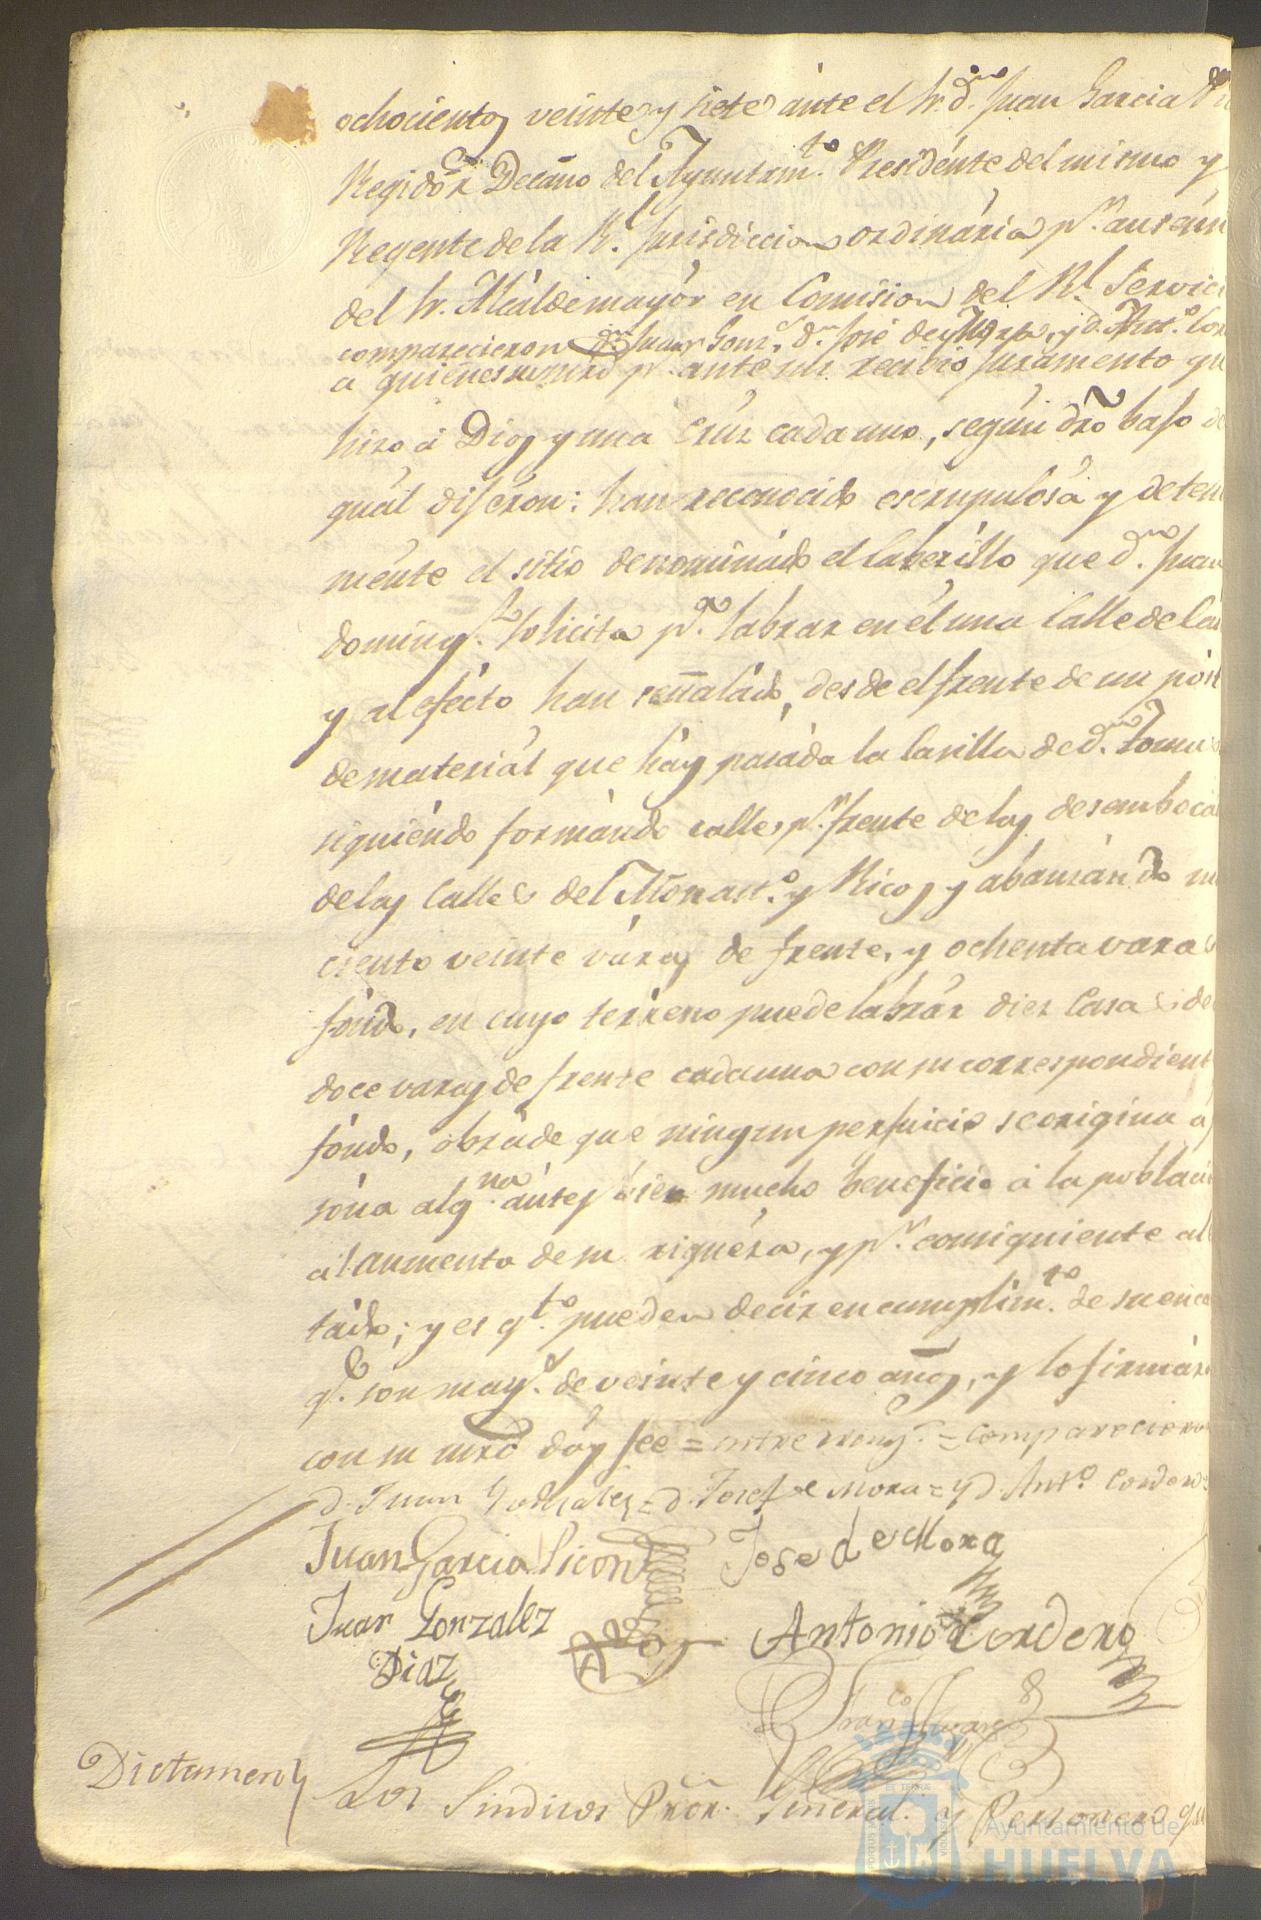 ochocientos veinte y siete ante el Sr. dn. Juan Garcia
Regidor Decano del Ayuntamto. Presidente del mismo y
Regente de la Rl. Jurisdiccion ordinaria pr. ausen
del Sr. Alcalde mayor en Comision del Rl. Servici
comparecieron dn. Juan Gonz. dn. José de Mora, y d. Anto. Cor
a quienes su mrd pr. ante mi recibio juramento qu
hizo á Dios y una Cruz cada uno, según dro bajo de
qual dijeron: han reconocido escrupulosa y deten
mente el sitio denominado el que dn. Juan
doming. solicita pa. labrar en él una Calle de Cas
y al efecto han señalado, desde el frente de un post
de material que hay pasada la Casilla de dn. Tomas
siguiendo formando calle, pr. frente de las desemboca
de las Calles del Monast.o y Ricos y abanzando
ciento veinte varas de frente, y ochenta varas
fondo, en cuyo terreno puede labrar diez Casas de
doce varas de frente cada una con su correspondient
fondo, que ningun perjuicio se origina a
sona algna. antes bien mucho beneficio á la poblaci
al aumento de su riqueza, y pr. consiguiente al
tado; y es qto. pueden decir en cumplimto. de su enca
qe. son mays. de veinte y cinco años, y lo firmar
con su mrd doy fee = entre rengs. = comparecieron
d. Juan Gonzalez = d. José de Mora = y d. Anto. Cordero
Juan Garcia Picon Jose de Mora
Juan Gonzalez Antonio Cordero
Diaz
Franco.
Dictamen Los Sindicos Pror. General. y Personero qu
EL TERRAE
Ayuntamiento de
HUELVA